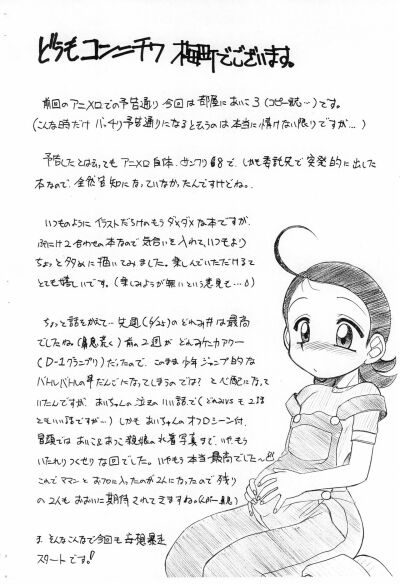 どうもコンニチワ 梅町でございます。
前回のアニメロでの予告通り今回は部屋にあいこ3(コピー誌…)です。
(こんな時だけ バッチリ予告通りになるというのは本当に情けない限りですが…)
予告したとはいってもアニメロ自体、サンクリ で、しかも委託先で突発的に出した
本なので、全然告知になっていなかったんですけどね。
いつものようにイラストだらけのもうダメダメな本ですが、
2合わせの本なので気合いを入れて、いつもより
ちょっと多めに描いてみました。楽しんでいただけると
とても嬉しいです。(楽しみようが無いという意見も…。)
ちょっと話をかえて…先週(6/25)のどれみ#は最高
でしたね(鼻息荒く)前の2週がどれみ
(D-1グランプリ)だったので、このまま少年ジャンプ的な
バトルバトルの になってしまうのでは?と心配になって
いたんですが、あいちゃんの泣きのいい話で(どれみVSも2話
ともいい話ですが…)しかもあいちゃんのオフロシーン付、
冒頭ではあいこ&あつこ の水着写真まで、いやもう
いたれりつくせりな回でした。いやもう本当最高でした~
これでママンとおフロに入ったのが2人になったので残り
の2人もおおいに期待されてきますね。
ま、そんなこんなで今回も妄想暴走
スタートです。!